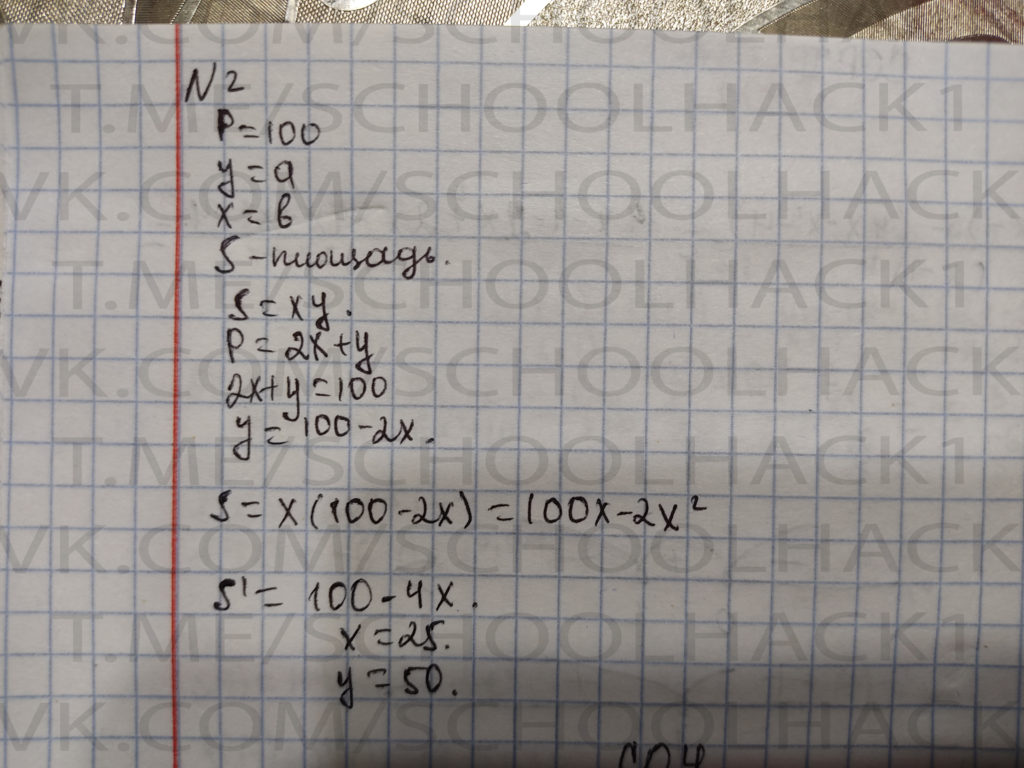 N 2
P=100
y=a
x=в
S-площадь.
S=xy.
P=2x+y
2x+y=100
y=100-2x.
S=x(100-2x)=100x-2x²
S'=100-4x.
x=25.
y=50.
VK.COM/SCHOOLHACK1
T.ME/SCHOOLHACK1
VK.COM/SCHOOLHACK
T.ME/SCHOOLHACK1
VK.COM/SCHOOLHACK
T.ME/SCHOOLHACK1
VK.COM/SCHOOLHACK
T.ME/SCHOOLHACK1
VK.COM/SCHOOLHACK